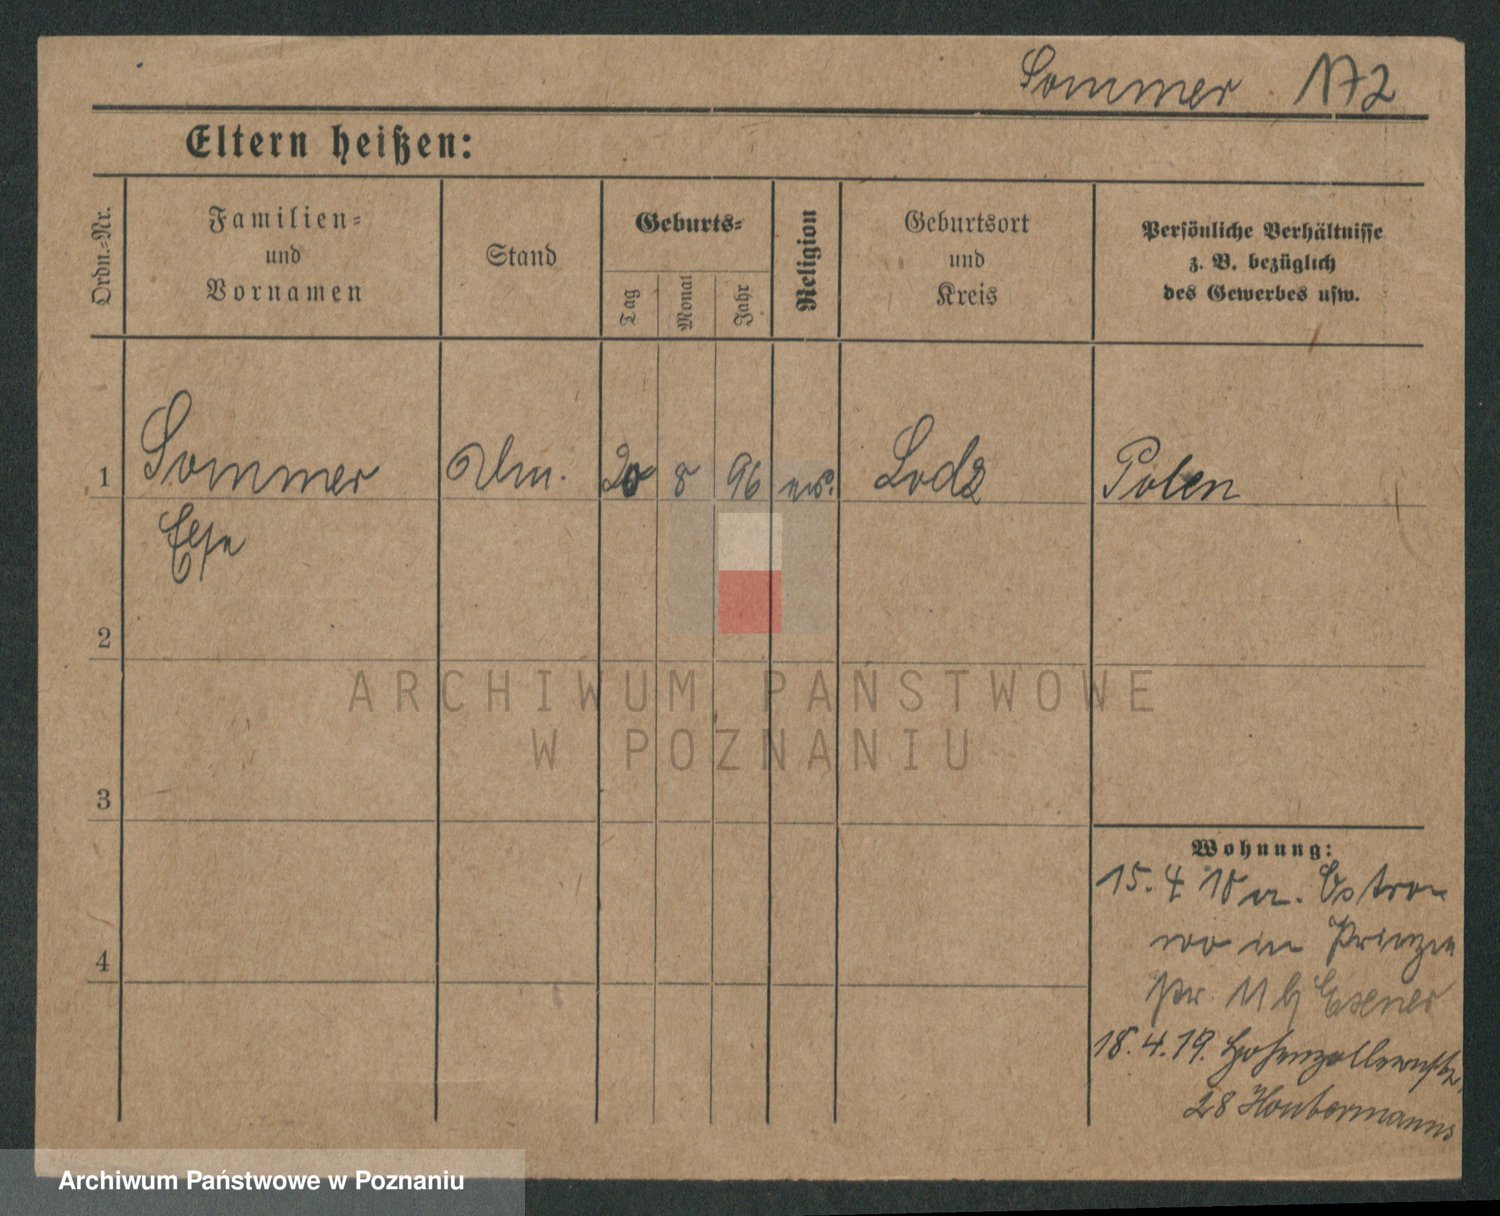 Sommer 172
Eltern heißen:
Ordn.-Nr.
Familien-
und
Vornamen
Stand
Geburts-
Tag
Monat
Jahr
Religion
Geburtsort
und
Kreis
Persönliche Verhältnisse
z. B. bezüglich
des Gewerbes usw.
1
Sommer
20 8 96
Lodz
Polen
Else
2
ARCHIWUM PAŃSTWOWE
W POZNANIU
3
Wohnung:
15. 4 18 Ostro-
wo in
4
18. 4. 19. Hohenzollernstr.
28
Archiwum Państwowe w Poznaniu